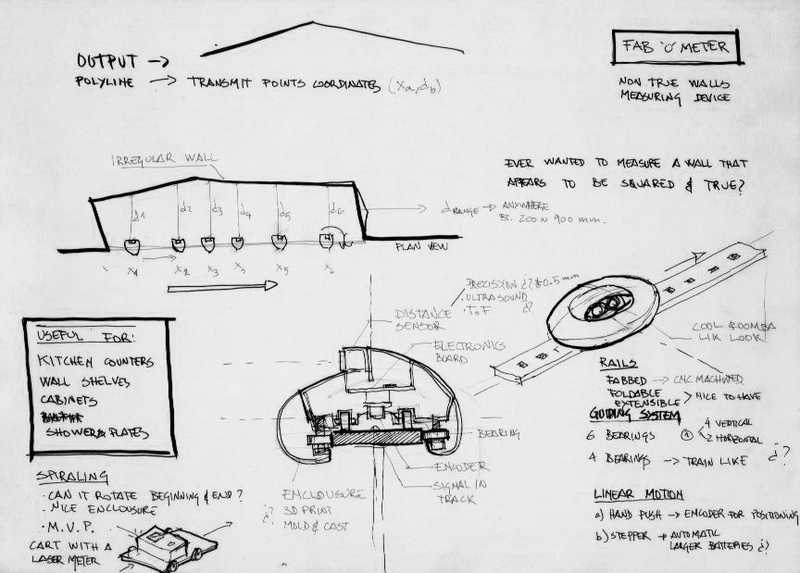 OUTPUT →
POLYLINE → TRANSMIT POINTS COORDINATES (Xa, db)
FAB 'O' METER
NON TRUE WALLS
MEASURING DEVICE
IRREGULAR WALL
EVER WANTED TO MEASURE A WALL THAT
APPEARS TO BE SQUARED & TRUE?
d1 d2 d3 d4 d5 d6
dRANGE → ANYWHERE
BT. 200 N 900 mm.
PLAN VIEW
X1 X2 X3 X5
USEFUL FOR:
KITCHEN COUNTERS
WALL SHELVES
CABINETS
SHOWER PLATES
PRECISION ¿? ±0.5 mm
ULTRASOUND
T.F ¿?
DISTANCE
SENSOR
ELECTRONICS
BOARD
BEARING
ENCODER
SIGNAL IN
TRACK
ENCLOUSURE
¿? 3D PRINT
MOLD & CAST
COOL ROOMBA
LIK LOOK!
RAILS
FABBED → CNC MACHINED
FOLDABLE
EXTENSIBLE > NICE TO HAVE
GUIDING SYSTEM
6 BEARINGS
4 VERTICAL
2 HORIZONTAL
4 BEARINGS → TRAIN LIKE ¿?
LINEAR MOTION
a) HAND PUSH → ENCODER FOR POSITIONING
b) STEPPER → AUTOMATIC
LARGER BATTERIES ¿?
SPIRALING
· CAN IT ROTATE BEGINNING & END?
· NICE ENCLOUSURE
· M.V.P.
CART WITH A
LASER METER